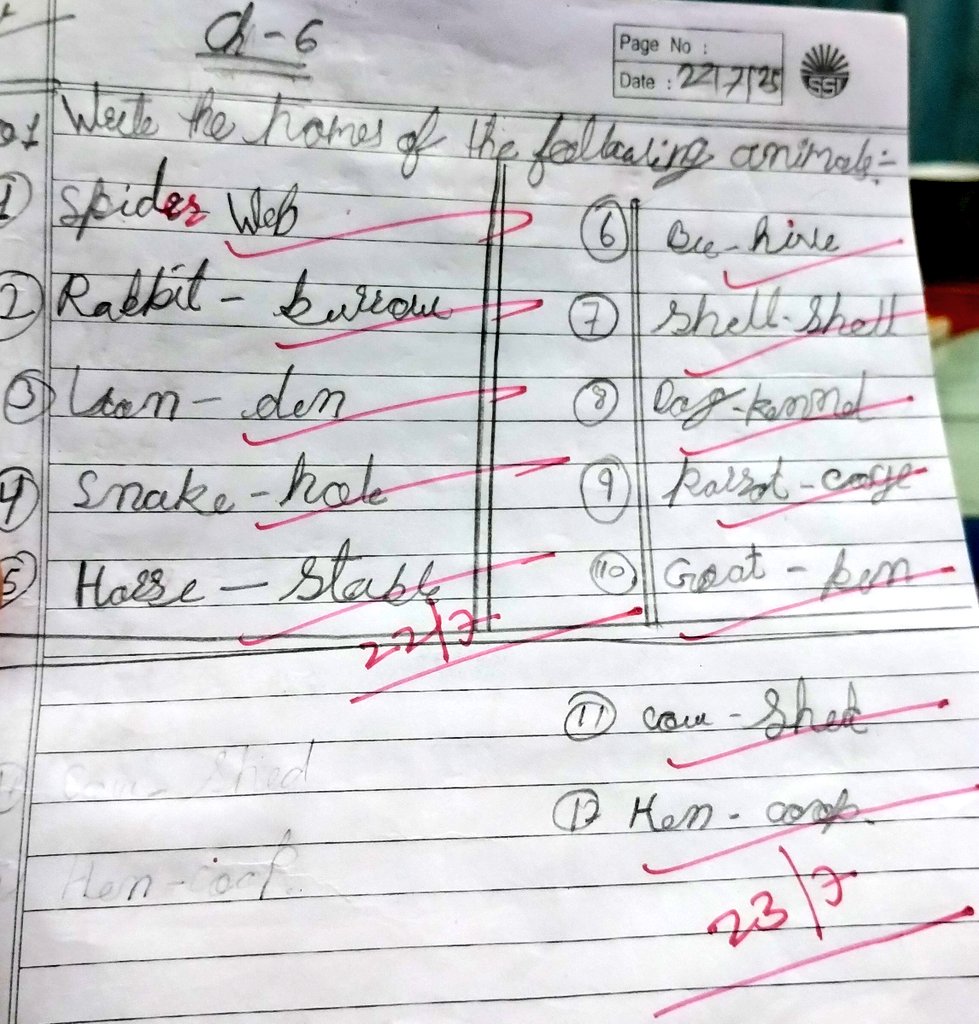 Ch - 6
Page No :
Date : 22/7/25
SSI
Q1 Write the homes of the following animals :-
1 Spider Web
2 Rabbit - burrow
3 Lion - den
4 Snake - hole
5 Horse - Stable
22/7
6 Bee - hive
7 Shell - Shell
8 Dog - kennel
9 Parrot - cage
10 Goat - pen
11 cow - Shed
12 Hen - coop.
23/7
cow - Shed
Hen - coop.